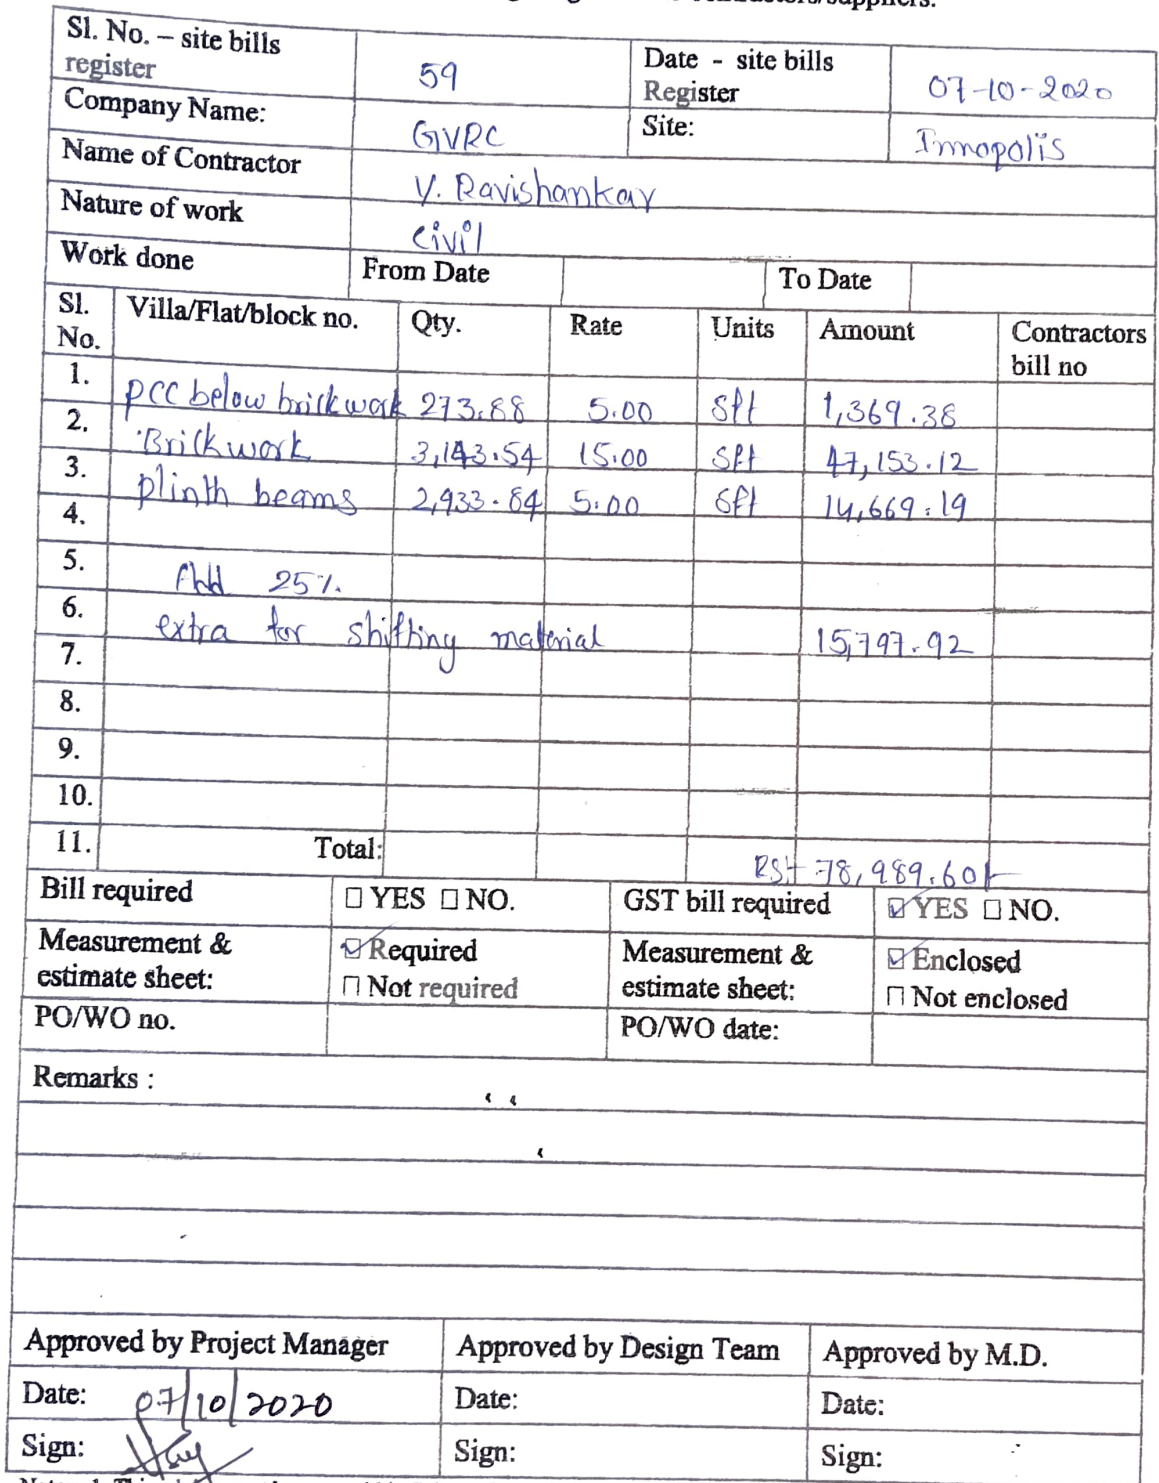 contractors/suppliers.
Sl. No. – site bills register 59 Date - site bills Register 07-10-2020
Company Name: GVRC Site: Innopolis
Name of Contractor V. Ravishankar
Nature of work Civil
Work done From Date To Date
Sl. No. Villa/Flat/block no. Qty. Rate Units Amount Contractors bill no
1. PCC below brickwork 273.88 5.00 Sft 1,369.38
2. Brickwork 3,143.54 15.00 Sft 47,153.12
3. plinth beams 2,933.84 5.00 Sft 14,669.19
4.
5. Add 25%
6. extra for shifting material 15,797.92
7.
8.
9.
10.
11. Total: RS/- 78,989.60/-
Bill required ☐ YES ☐ NO. GST bill required ☑ YES ☐ NO.
Measurement & estimate sheet: ☑ Required ☐ Not required Measurement & estimate sheet: ☑ Enclosed ☐ Not enclosed
PO/WO no. PO/WO date:
Remarks :
Approved by Project Manager Approved by Design Team Approved by M.D.
Date: 07/10/2020 Date: Date:
Sign: Sign: Sign: